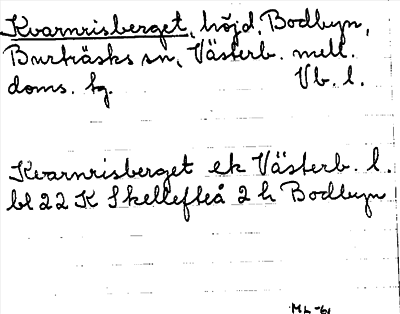 Kvarnrisberget, höjd, Bodbyn,
Burträsks sn, Västerb. mell.
doms. tg. Vb. l.
Kvarnrisberget ek Västerb. l.
bl 22 K Skellefteå 2 h Bodbyn